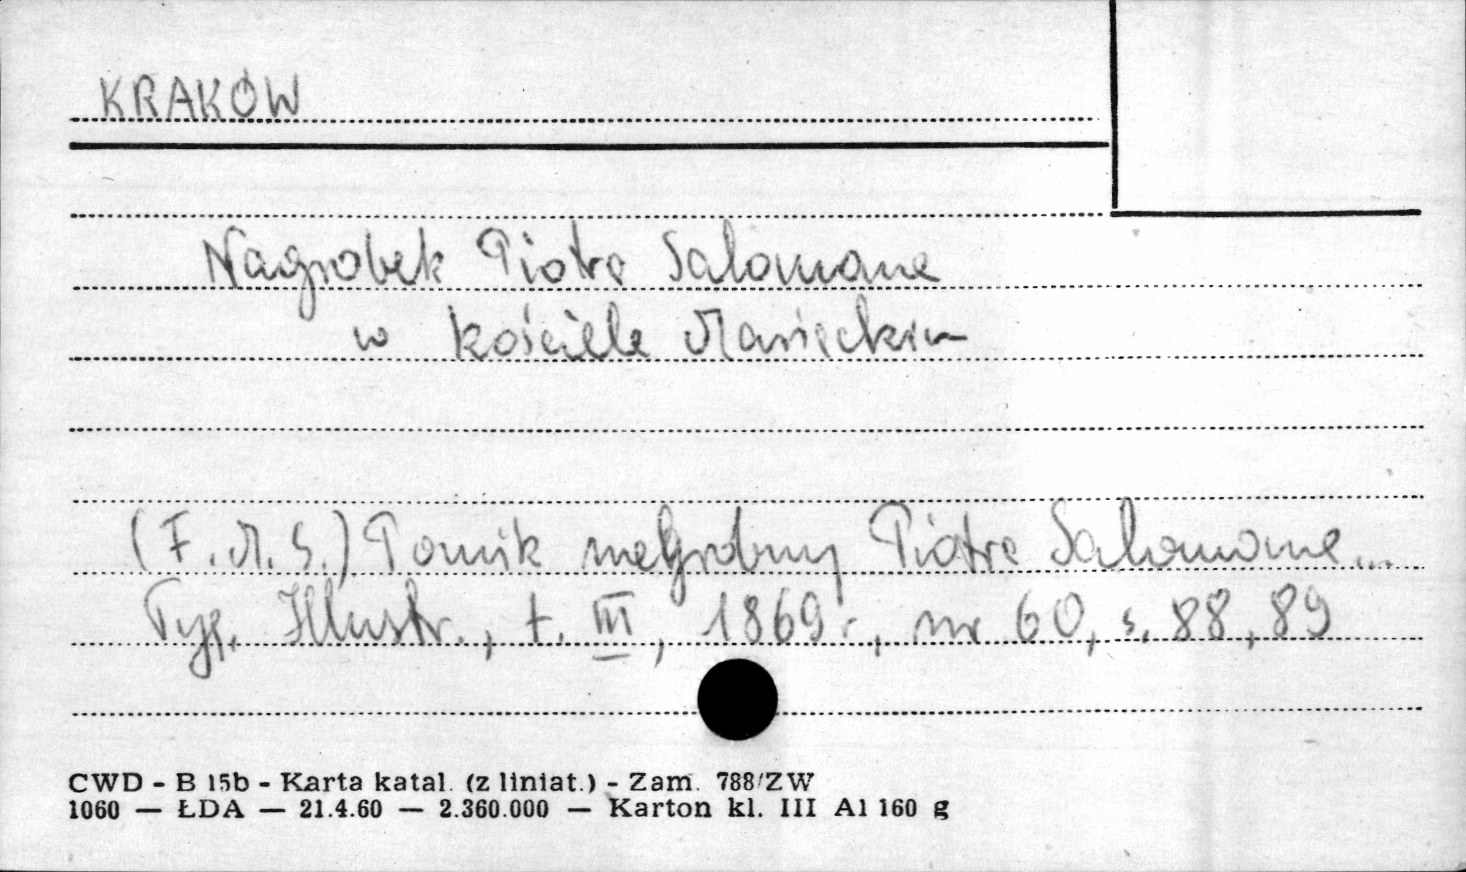 KRAKÓW
Nagrobek Piotra Salomona
w kościele Mariackim
(F. M. S.) Pomnik nagrobny Piotra Salomona...
Tyg. Illustr., t. III, 1869 r., nr 60, s. 88, 89
CWD - B 15b - Karta katal. (z liniat.) - Zam. 788/ZW
1060 — ŁDA — 21.4.60 — 2.360.000 — Karton kl. III A1 160 g